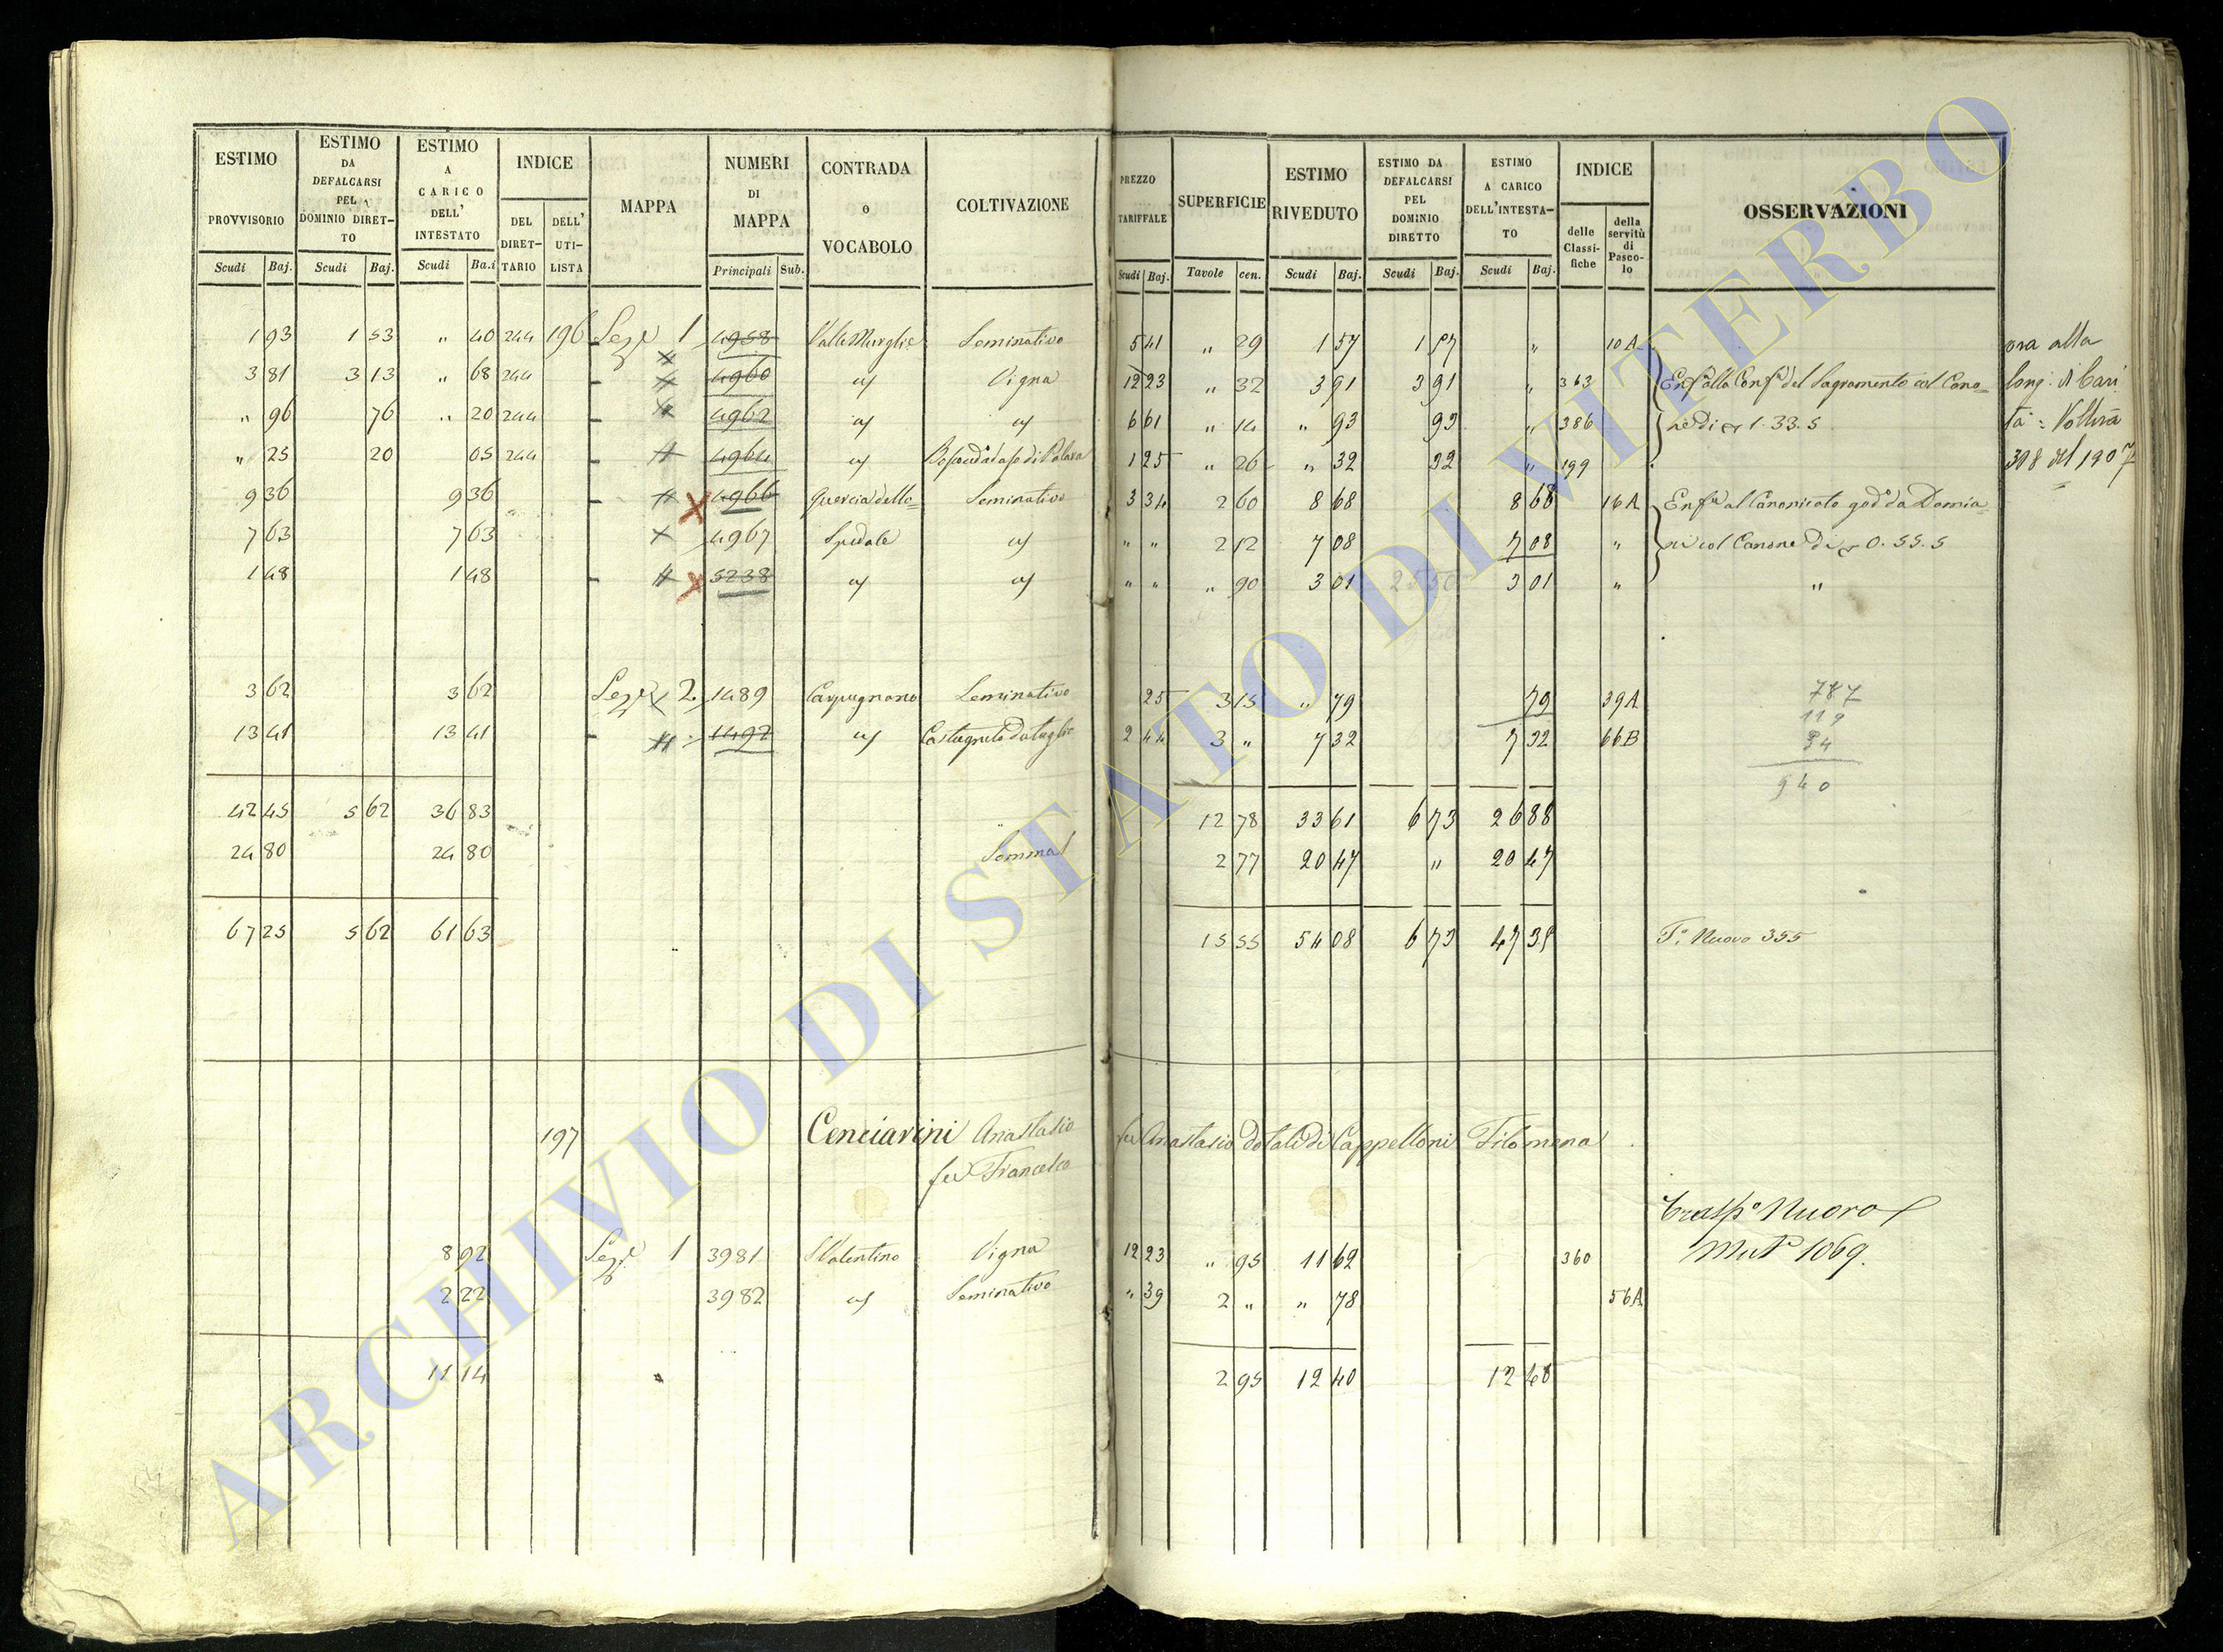 ESTIMO PROVVISORIO Scudi Baj.
ESTIMO DA DEFALCARSI PEL DOMINIO DIRETTO Scudi Baj.
ESTIMO A CARICO DELL' INTESTATO Scudi Ba.i
INDICE DEL DIRETTARIO DELL' UTILISTA
MAPPA
NUMERI DI MAPPA Principali Sub.
CONTRADA O VOCABOLO
COLTIVAZIONE
PREZZO TARIFFALE Scudi Baj.
SUPERFICIE Tavole cen.
ESTIMO RIVEDUTO Scudi Baj.
ESTIMO DA DEFALCARSI PEL DOMINIO DIRETTO Scudi Baj.
ESTIMO A CARICO DELL'INTESTATO Scudi Baj.
INDICE delle Classifiche della servitù di Pascolo
OSSERVAZIONI
1 93 1 53 " 40 244 196 Sez.e 1 4958 Seminativo 5 41 " 29 1 57 1 57 " 10A ora alla
3 81 3 13 " 68 244 4960 Vigna 12 23 " 32 3 91 3 91 " 363 del Sagramento col Cano= Cong. di Cari
" 96 76 " 20 244 4962 6 61 " 14 " 93 93 " 386 ne di 1.33.5 tà = Voltura
" 25 20 05 244 4964 1 25 " 26 " 32 32 " 199 398 del 1907
9 36 9 36 4966 Quercia dello= Seminativo 3 34 2 60 8 68 8 68 16A al Canonicato god.o da Damia=
7 63 7 63 4967 Spedale " " 2 12 7 08 7 08 " ni col Canone di 0.55.5
1 48 1 48 5238 " " " 90 3 01 3 01 " "
3 62 3 62 Sez.e 2 1489 Carpugnano Seminativo 25 3 15 " 79 79 39A 787
13 41 13 41 1492 Castagneto da taglio 2 44 3 " 7 32 7 32 66B 119
34
940
42 45 5 62 36 83 12 78 33 61 6 73 26 88
24 80 24 80 Somma 2 77 20 47 " 20 47
67 25 5 62 61 63 15 55 54 08 6 73 47 35 F.o Nuovo 355
197 Cenciarini Anastasio fu Anastasio dotali di Cappelloni Filomena
fu Francesco
Trasp.o Nuovo
8 92 Sez.e 1 3981 S Valentino Vigna 12 23 " 95 11 62 360 Mut.a 1069.
2 22 3982 Seminativo " 39 2 " " 78 56A
11 14 2 95 12 40 12 40
ARCHIVIO DI STATO DI VITERBO